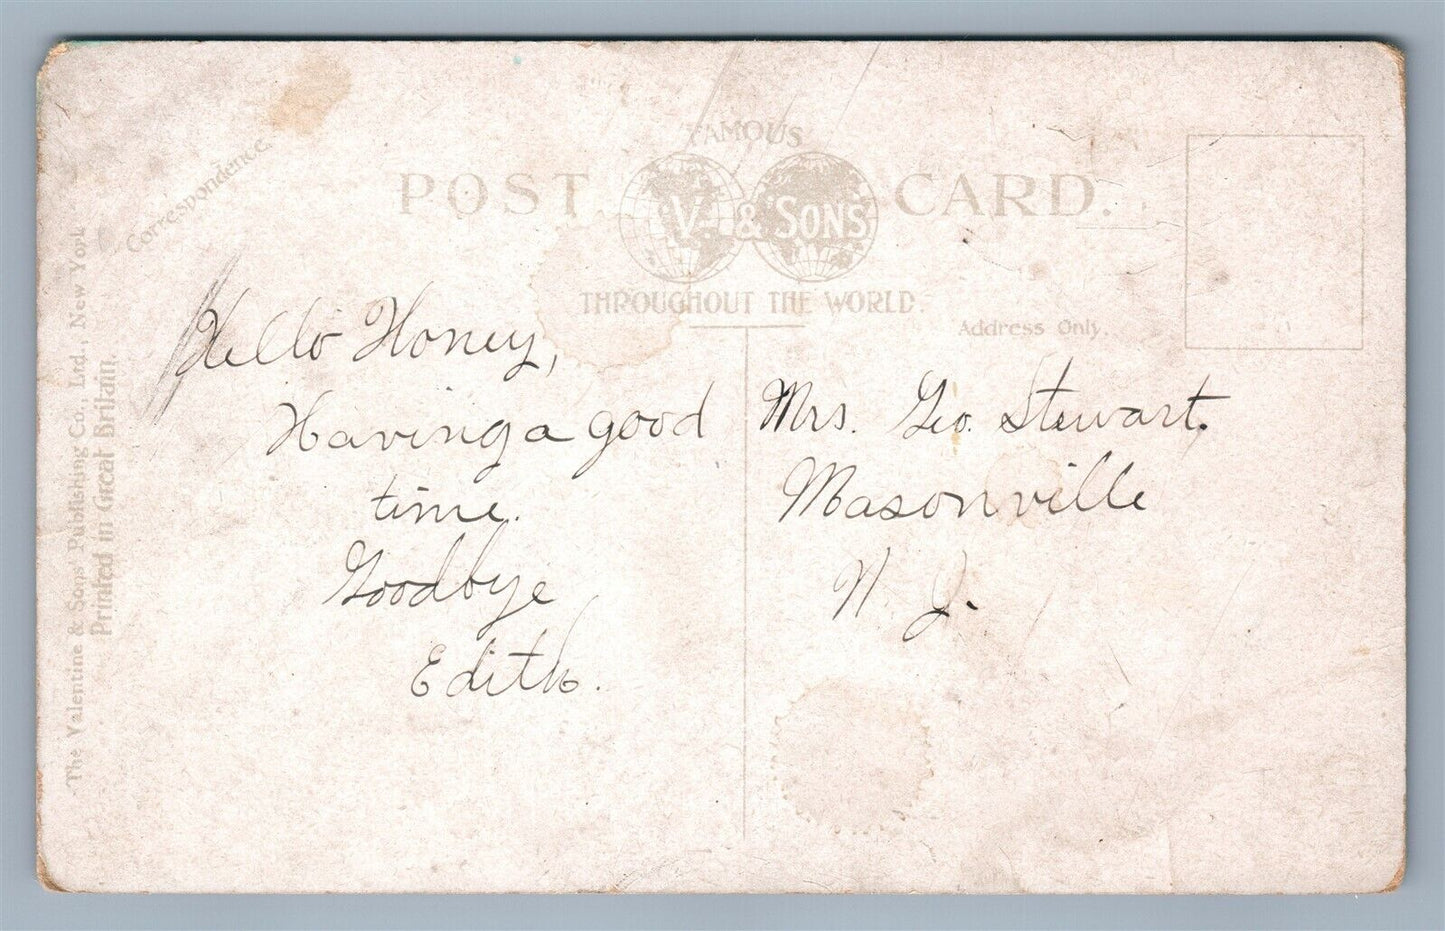 FAMOUS
POST CARD.
V. & SONS
THROUGHOUT THE WORLD.
Correspondence.
Address Only.
The Valentine & Sons' Publishing Co. Ltd., New York
Printed in Great Britain.
Hello Honey,
Having a good
time.
Goodbye
Edith.
Mrs. Geo. Stewart.
Masonville
N. J.